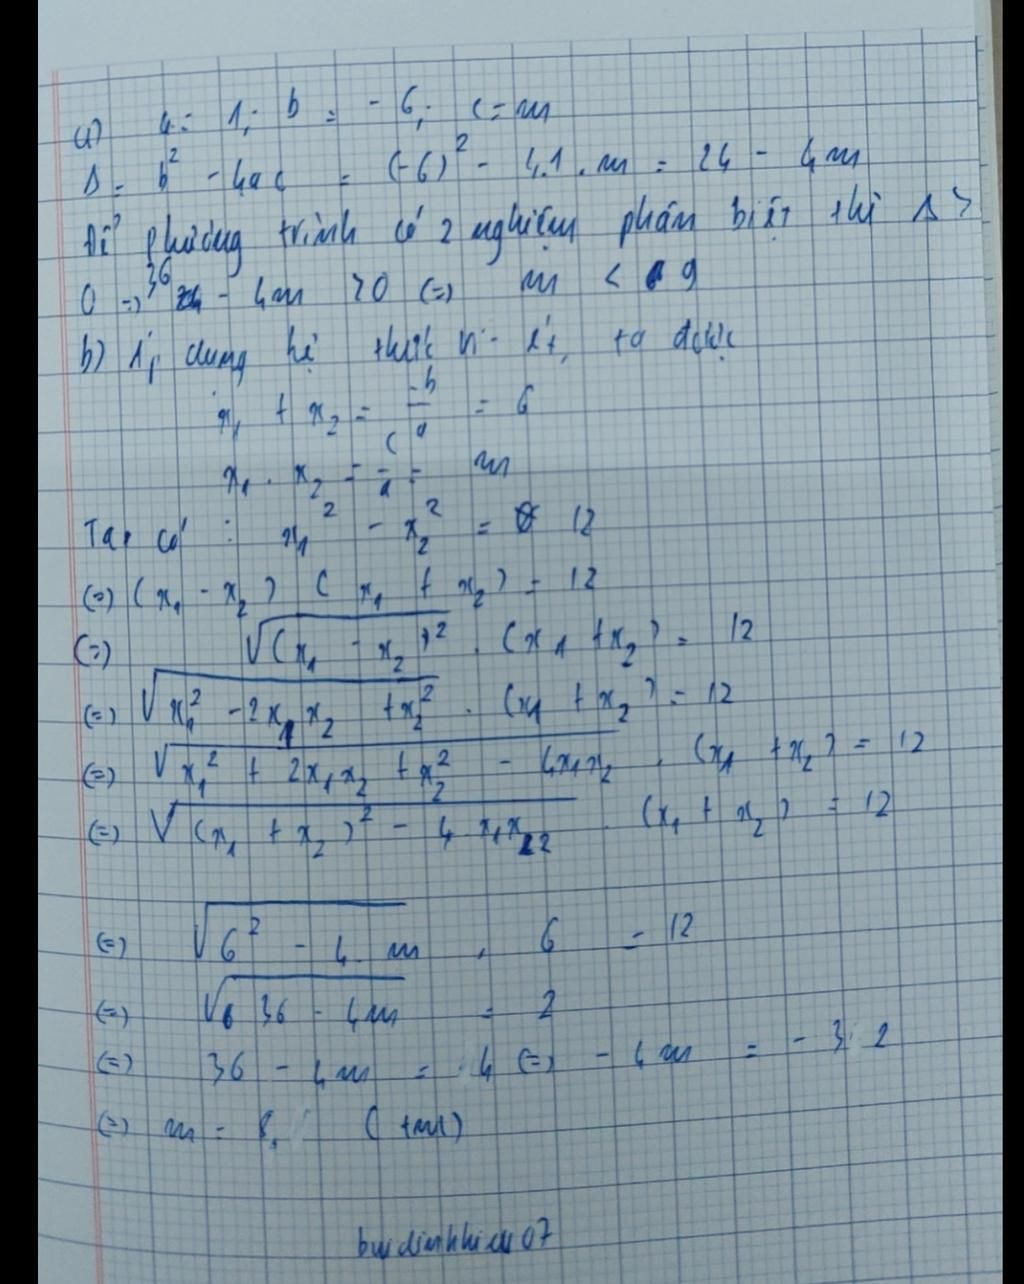 a) a = 1; b = -6; c = m
Δ = b² - 4ac = (-6)² - 4.1.m = 24 - 4m
Để phương trình có 2 nghiệm phân biệt thì Δ >
0 => 36 - 4m > 0 (=) m < 9
b) Áp dụng hệ thức Vi-ét, ta được
x₁ + x₂ = -b/a = 6
x₁ . x₂ = c/a = m
Ta có : x₁² - x₂² = 12
(=) (x₁ - x₂) (x₁ + x₂) = 12
(=) √(x₁ - x₂)² . (x₁ + x₂) = 12
(=) √x₁² - 2x₁x₂ + x₂² . (x₁ + x₂) = 12
(=) √x₁² + 2x₁x₂ + x₂² - 4x₁x₂ . (x₁ + x₂) = 12
(=) √(x₁ + x₂)² - 4x₁x₂ . (x₁ + x₂) = 12
(=) √6² - 4.m . 6 = 12
(=) √36 - 4m = 2
(=) 36 - 4m = 4 (=) -4m = -32
(=) m = 8. (tm)
buidinhhieu07